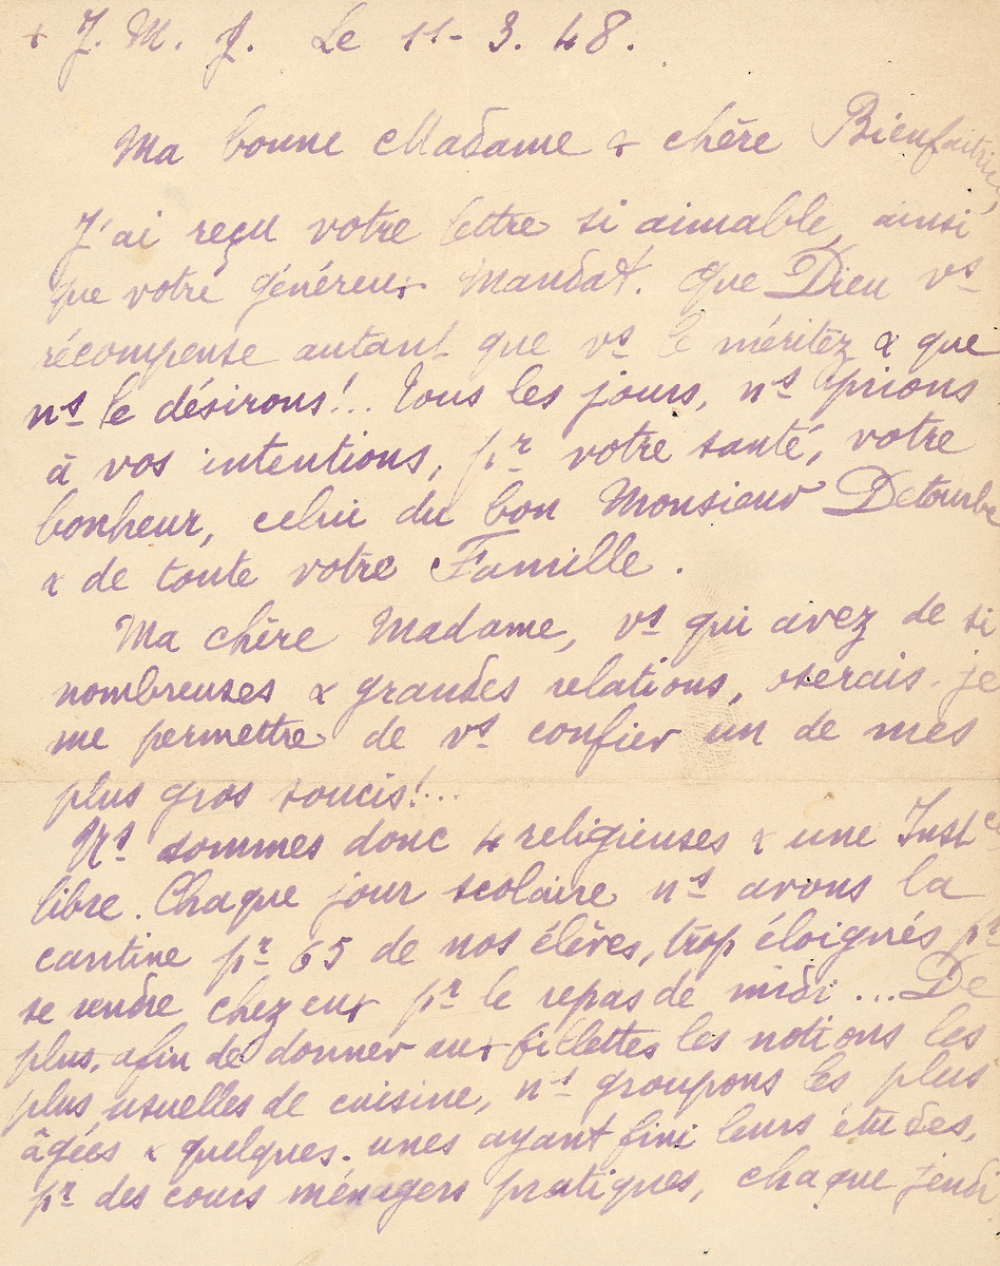 + J. M. J. Le 11-3.48.
Ma bonne Madame & chère Bienfaitrice,
J'ai reçu votre lettre si aimable, ainsi
que votre généreux mandat. Que Dieu vs
récompense autant que vs le méritez & que
ns le désirons!.. Tous les jours, ns prions
à vos intentions, pr votre santé, votre
bonheur, celui du bon Monsieur Detourbe
& de toute votre Famille.
Ma chère Madame, vs qui avez de si
nombreuses & grandes relations, oserais-je
me permettre de vs confier un de mes
plus gros soucis!...
Ns sommes donc 4 religieuses & une Instce
libre. Chaque jour scolaire ns avons la
cantine pr 65 de nos élèves, trop éloignés pr
se rendre chez eux pr le repas de midi... De
plus, afin de donner aux fillettes les notions les
plus usuelles de cuisine, ns groupons les plus
âgées & quelques-unes ayant fini leurs études,
pr des cours ménagers pratiques, chaque jeudi